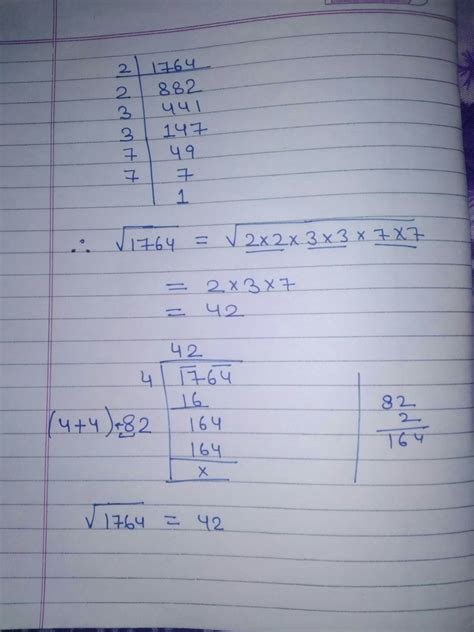 2 | 1764
2 | 882
3 | 441
3 | 147
7 | 49
7 | 7
1
∴ √1764 = √2×2×3×3×7×7
= 2×3×7
= 42
42
4 | 1764
16
(4+4)→82 | 164
164
x
82
2
164
√1764 = 42